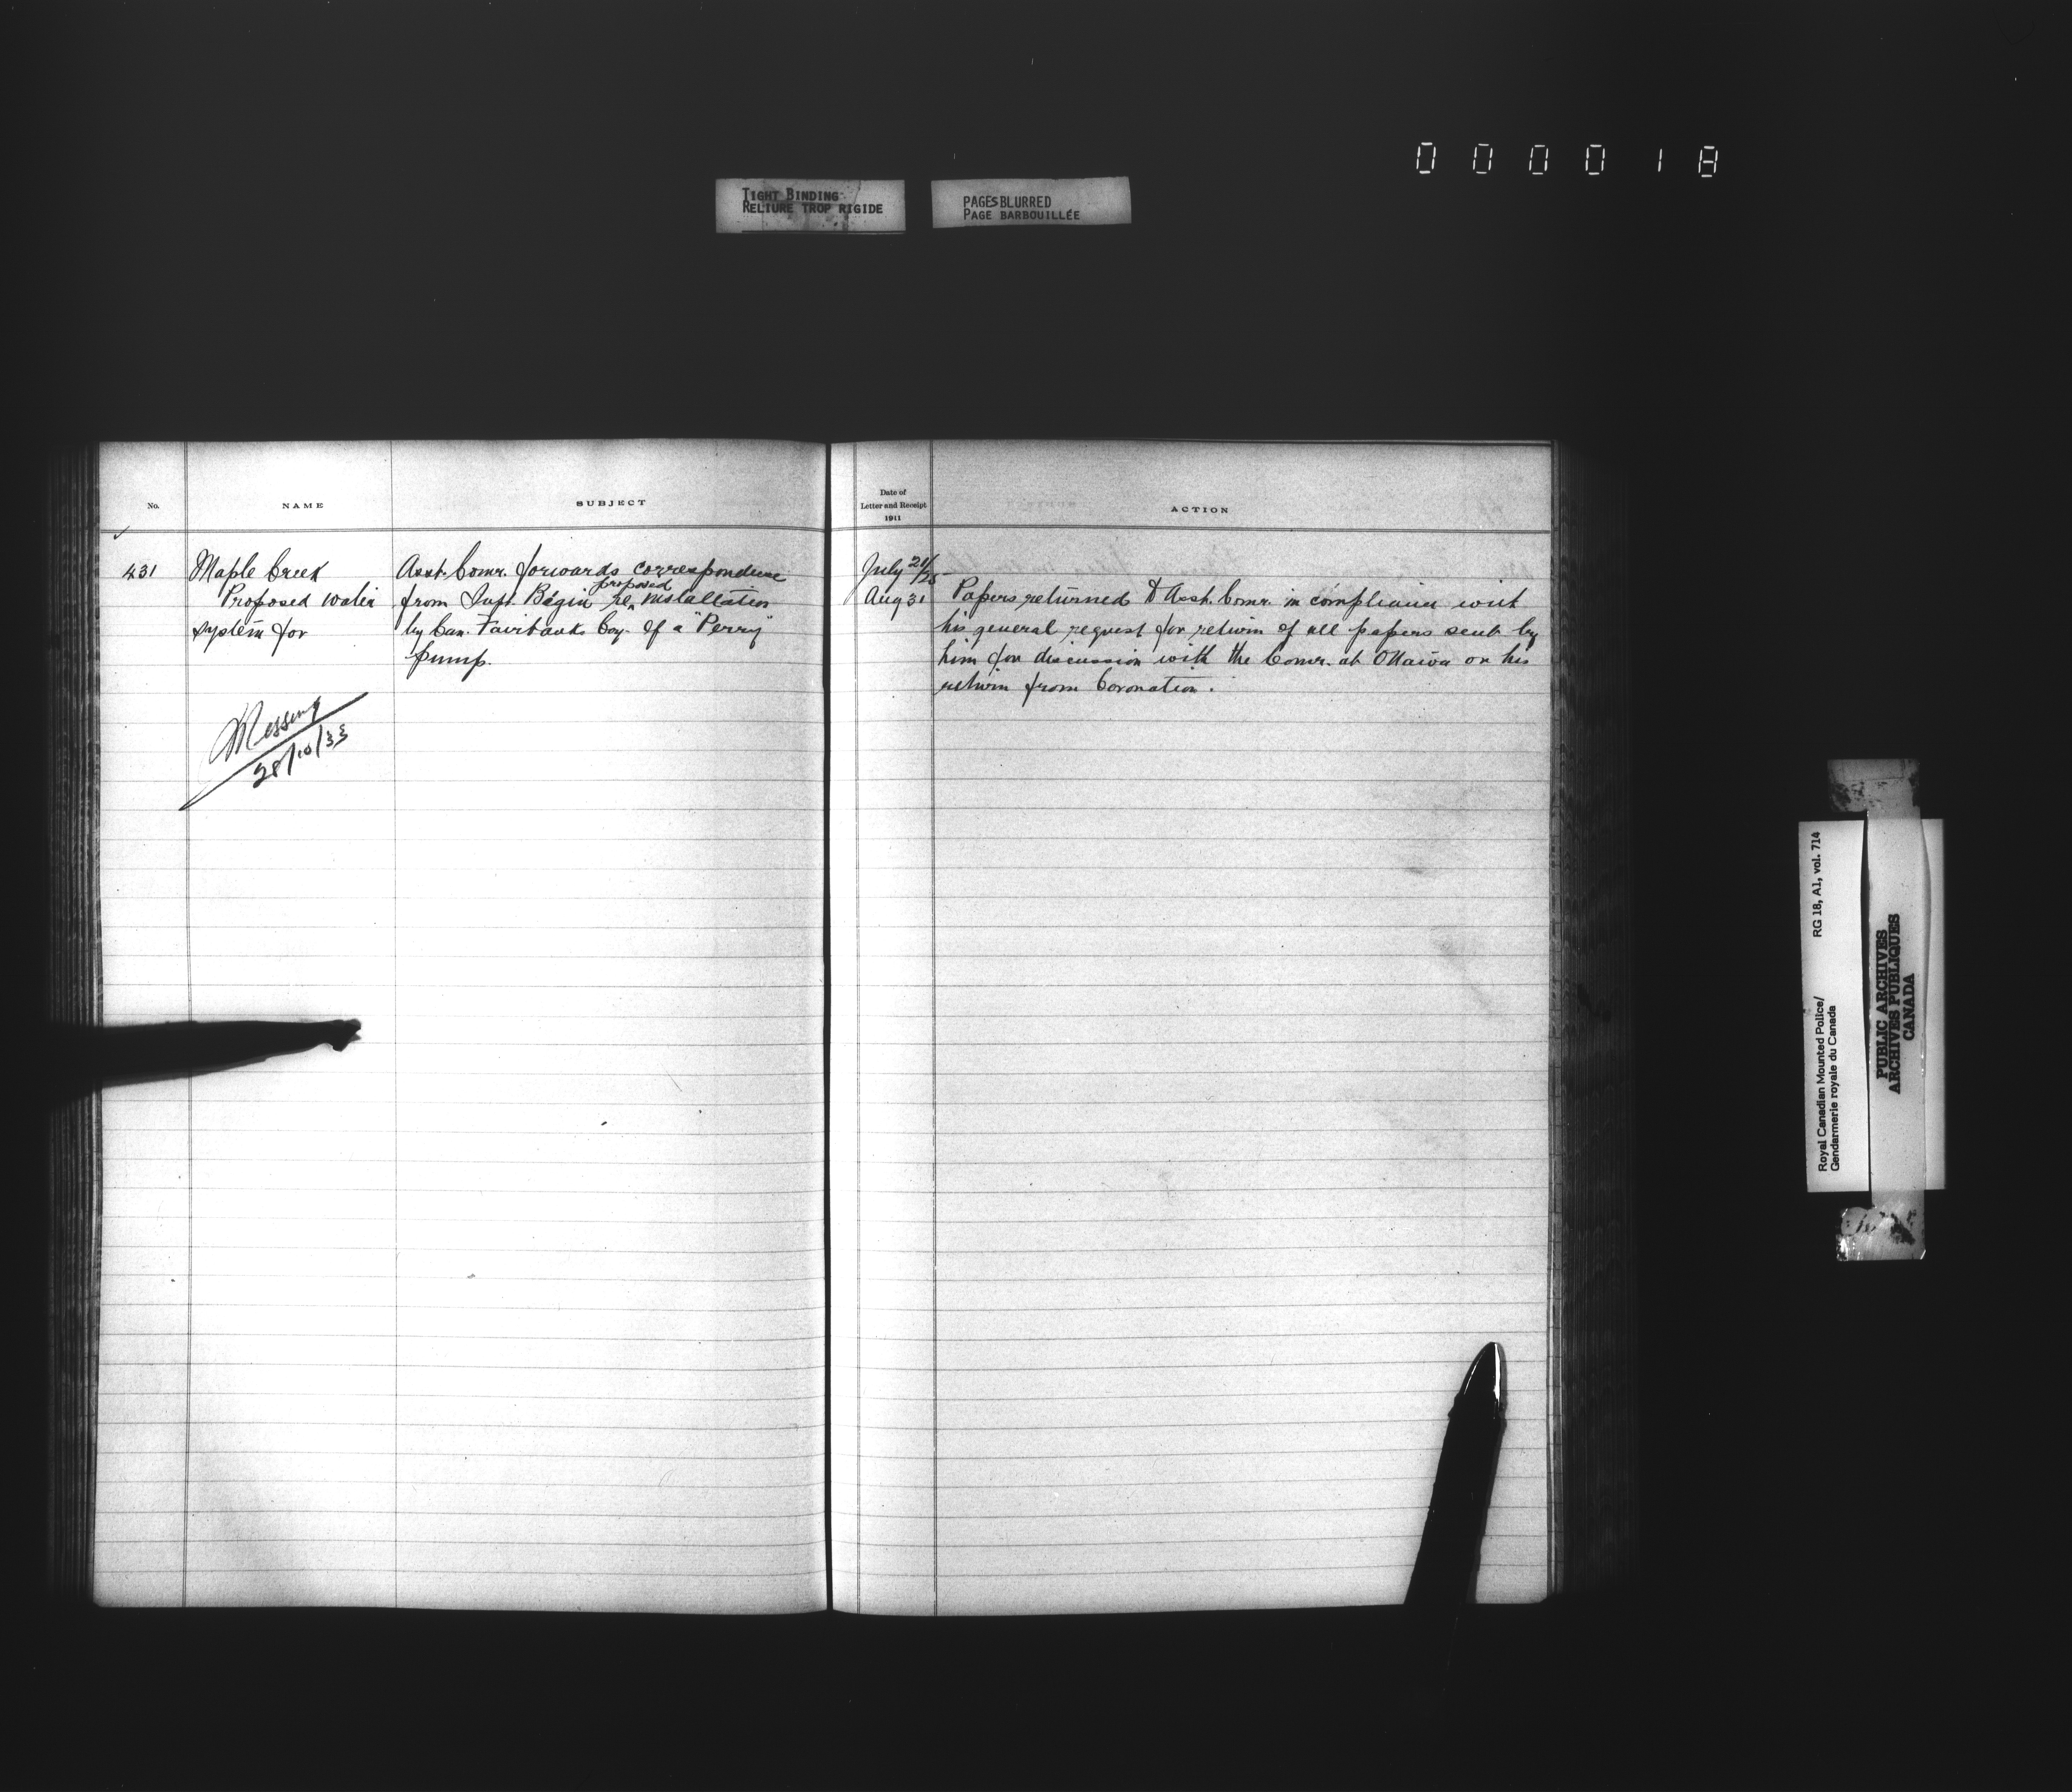 0 0 0 0 1 8
TIGHT BINDING
RELIURE TROP RIGIDE
PAGES BLURRED
PAGE BARBOUILLÉE
No.
NAME
SUBJECT
431
Maple Creek
Proposed water
system for
Asst. Comr. forwards correspondence
from Supt. Bégin re proposed installation
by Can. Fairbanks Coy. of a "Perry"
pump.
Missing
28/10/33
Date of
Letter and Receipt
1911
ACTION
July 21/25
Aug 31
Papers returned to Asst. Comr. in compliance with
his general request for return of all papers sent by
him for discussion with the Comr. at Ottawa on his
return from Coronation.
Royal Canadian Mounted Police/
Gendarmerie royale du Canada
RG 18, A1, vol. 714
PUBLIC ARCHIVES
ARCHIVES PUBLIQUES
CANADA